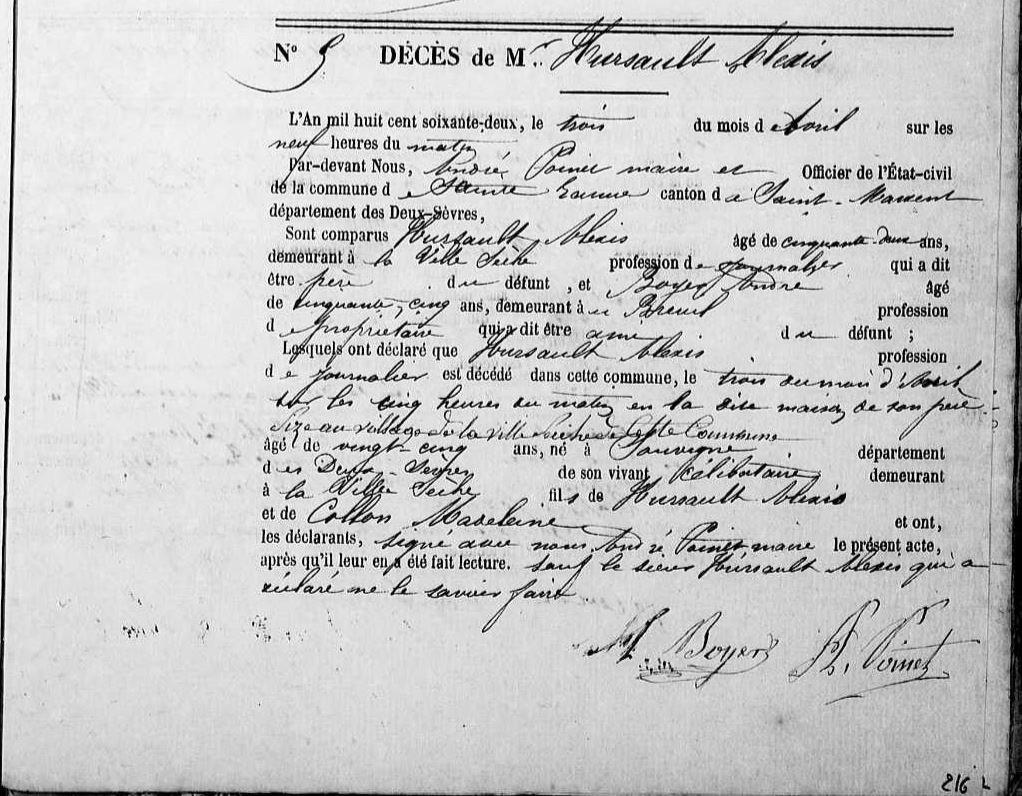 N° 5 DÉCÈS de Mr. Hursault Alexis
L'An mil huit cent soixante-deux, le trois du mois d'Avril sur les
neuf heures du matin
Par-devant Nous, André Poinet maire et Officier de l'État-civil
de la commune de Sainte Eanne canton de Saint-Maixent
département des Deux-Sèvres,
Sont comparus Hursault Alexis âgé de cinquante-deux ans,
demeurant à la Ville Sèche profession de journalier qui a dit
être père du défunt, et Boyer André âgé
de cinquante-cinq ans, demeurant à Breuil profession
de propriétaire qui a dit être ami du défunt ;
Lesquels ont déclaré que Hursault Alexis profession
de journalier est décédé dans cette commune, le trois du mois d'Avril
sur les cinq heures du matin en la dite maison de son père
Size au village de la Ville Sèche de Cette Commune
âgé de vingt-cinq ans, né à Souvigné département
des Deux-Sevres de son vivant Célibataire demeurant
à la Ville Sèche fils de Hursault Alexis
et de Collon Madeleine et ont,
les déclarants, signé avec nous André Poinet maire le présent acte,
après qu'il leur en a été fait lecture. sauf le sieur Hursault Alexis qui a
déclaré ne le savoir faire
Boyer A. Poinet
216